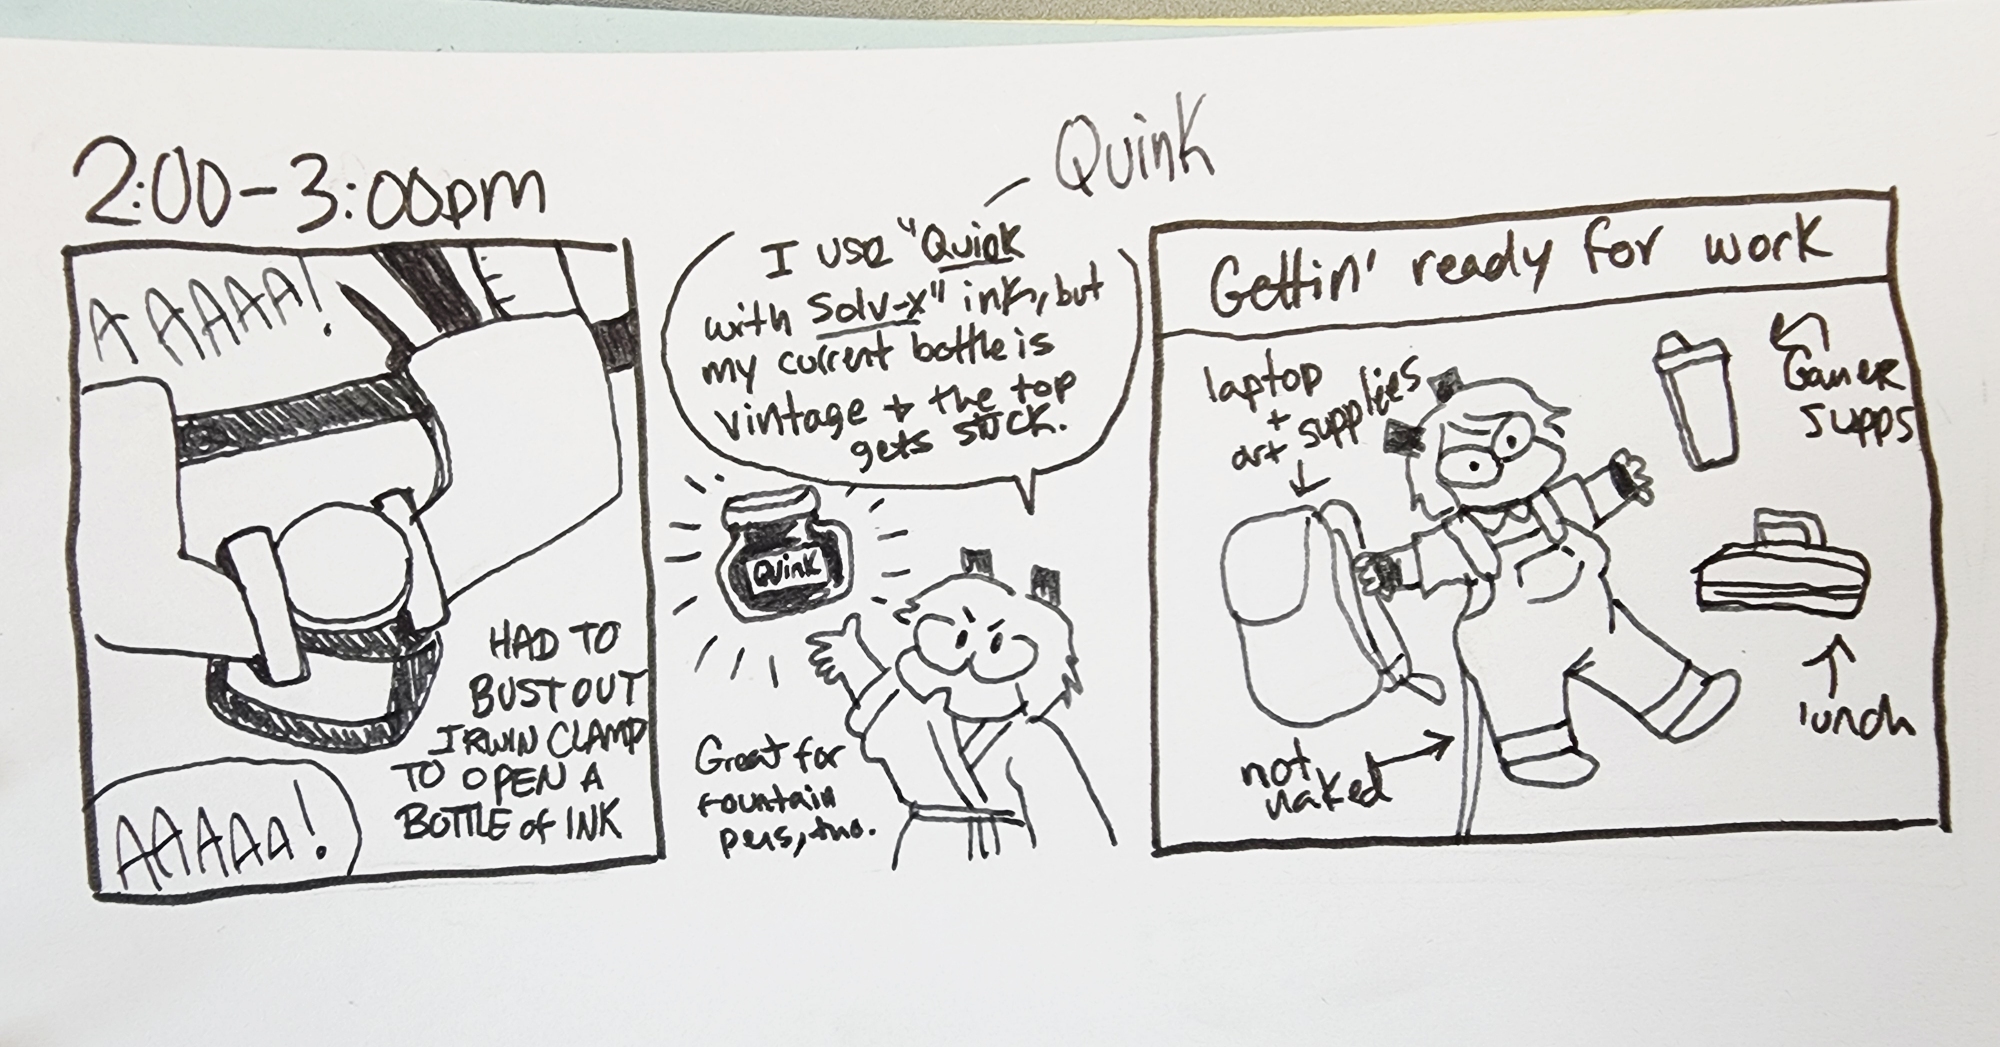 2:00-3:00pm
Quink
A AAAAA!
HAD TO
BUST OUT
IRWIN CLAMP
TO OPEN A
BOTTLE of INK
AAAAAA!
I use "Quink
with Solv-x" ink, but
my current bottle is
vintage + the top
gets stuck.
Quink
Great for
fountain
pens, too.
Gettin' ready for work
laptop
+
art supplies
Gamer
Supps
lunch
not
naked